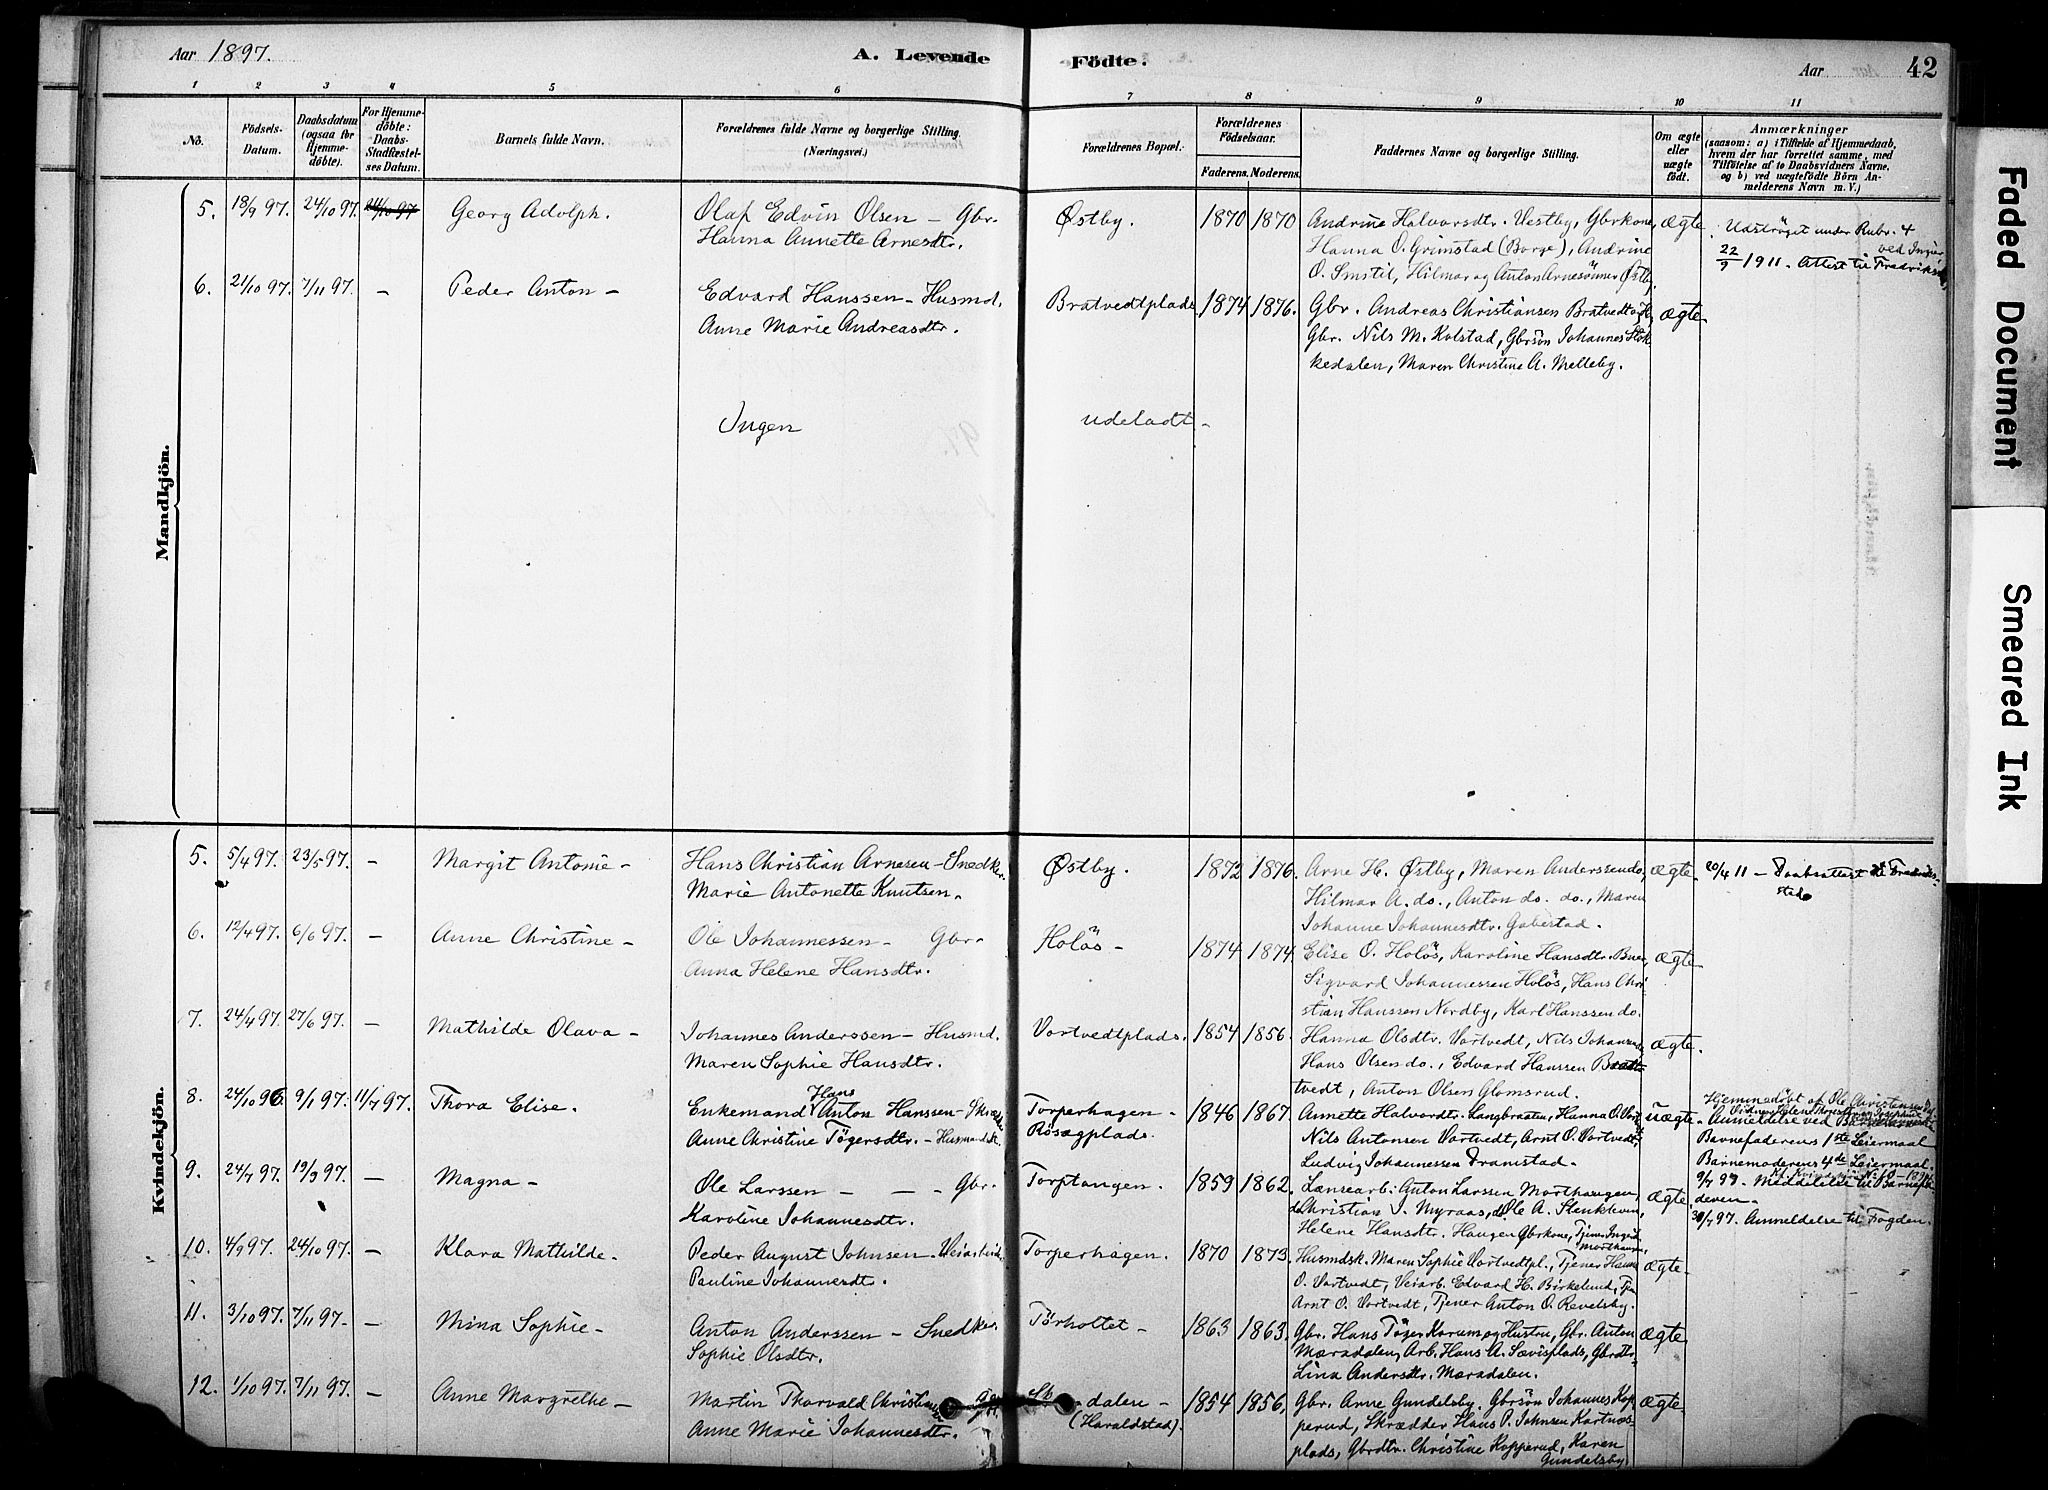 Aar 1897.
A. Levende Födte.
Aar
42
1 2 3 4 5 6 7 8 9 10 11
No.
Födsels-Datum.
Daabsdatum (ogsaa for Hjemmedöbte).
For Hjemmedöbte: Daabs-Stadfæstelses Datum.
Barnets fulde Navn.
Forældrenes fulde Navne og borgerlige Stilling. (Næringsvei.)
Forældrenes Bopæl.
Forældrenes Födselsaar.
Faderens. Moderens.
Faddernes Navne og borgerlige Stilling.
Om ægte eller uægte födt.
Anmærkninger
(saasom: a) i Tilfælde af Hjemmedaab, hvem der har forrettet samme, med Tilföielse af to Daabsvidners Navne, og b) ved uægtefödte Börn Anmelderens Navn m. V.)
Mandkjön.
5. 18/9 97. 24/10 97. 24/10 97 Georg Adolph. Olaf Edvin Olsen - Gbr. Østby. 1870 1870 Andrine Halvorsdtr. Vestby, Gbrkone, ægte. Udströget under Rubr. 4
Hanna Annette Arnesdtr. Hanna O. Grimstad (Borge), Andrine ved
O. Smstil, Hilmar og Anton Arnesönner Østby. 22/9 1911. Attest til
6. 21/10 97. 7/11 97. - Peder Anton - Edvard Hanssen - Husmd. Bratvedtplads 1874 1876. Gbr. Andreas Christiansen Bratvedt ægte
Anne Marie Andreasdtr. Gbr. Nils M. Kolstad, Gbrsön Johannes Stok-
kedalen, Maren Christine A. Melleby.
Ingen udeladt -
Kvindekjön.
5. 5/4 97. 23/5 97. - Margit Antonie - Hans Christian Arnesen - Snedker. Østby. 1872 1876. Arne H. Østby, Maren Anderssen do, ægte. 20/4 11 - Daabsattest til Fredriks-
Marie Antonette Knutsen. Hilmar A. do., Anton do. do., Maren stad
Johanne Johannesdtr. Gabestad.
6. 12/4 97. 6/6 97. - Anne Christine - Ole Johannessen - Gbr. Holös - 1874 1874 Elise O. Holös, Karoline Hansdtr. Buer, ægte
Anna Helene Hansdtr. Sigvard Johannessen Holös, Hans Chri-
stian Hanssen Nordby, Karl Hanssen do.
7. 24/4 97. 27/6 97. - Mathilde Olava - Johannes Anderssen - Husmd. Vortvedtplads. 1854 1856. Hanna Olsdtr. Vortvedt, Nils Johannes ægte.
Maren Sophie Hansdtr. Hans Olsen do., Edvard Hanssen Brat-
tvedt, Anton Olsen Glomsrud.
8. 24/10 96. 9/1 97. 11/7 97. Thora Elise. Enkemand Hans Anton Hanssen - Torperhagen - 1846 1867. Annette Halvordtr. Langbraaten, Hanna O. Vort uægte Hjemmedöbt af Ole Christensen
Anne Christine Tögersdtr. - Husmandsk. Rösægplads. Nils Antonsen Vortvedt, Arnt O. Vortvedt, - Anmeldelse ved
Ludvig Johannessen Dramstad. Barnefaderens 1ste Leiermaal
Barnemoderens 4de Leiermaal.
9/7 97 - Meddelelse til Barnefa-
deren -
30/7 97. Anmeldelse til Fogden.
9. 24/7 97. 19/9 97. - Magna - Ole Larssen - - - Gbr. Torptangen. 1859 1862. Lænsearb. Anton Larssen Morthaugen, ægte.
Karoline Johannesdtr. do Christian J. Myraas, do. Ole A. Slenkhven,
Helene Hansdtr. Haugen Gbrkone, Tjener Ingrid Morthaugen,
10. 4/9 97. 24/10 97. - Klara Mathilde - Peder August Johnsen - Veiarbeid. Torperhagen. 1870 1873. Husmdsk. Maren Sophie Vortvedtpl., Tjener Hanna ægte -
Pauline Johannesdtr. O. Vortvedt, Veiarb. Edvard H. Birkelund, Tjen
Arnt O. Vortvedt, Tjener Anton O. Revelsby.
11. 3/10 97. 7/11 97 - - Mina Sophie - Anton Anderssen - Snedker. Törholtet - 1863 1863. Gbr. Hans Töger Karum og Hustru, Gbr. Anton ægte
Sophie Olsdtr. Mæradalen, Arb. Hans A. Sævisplads, Gbrdtr.
Lina Andersdtr. Mæradalen.
12. 1/10 97. 7/11 97. - Anne Margrethe - Martin Thorvald Christian dalen - 1854 1856. Gbr. Arne Gundelsby, Gbrsön Johannes Kop- ægte
Anne Marie Johannesdtr. (Haraldstad). perud, Skrædder Hans P. Johnsen Kartnæs-
plads, Gbrdtr. Christine Kopperud, Karen
Gundelsby.
Faded Document
Smeared Ink